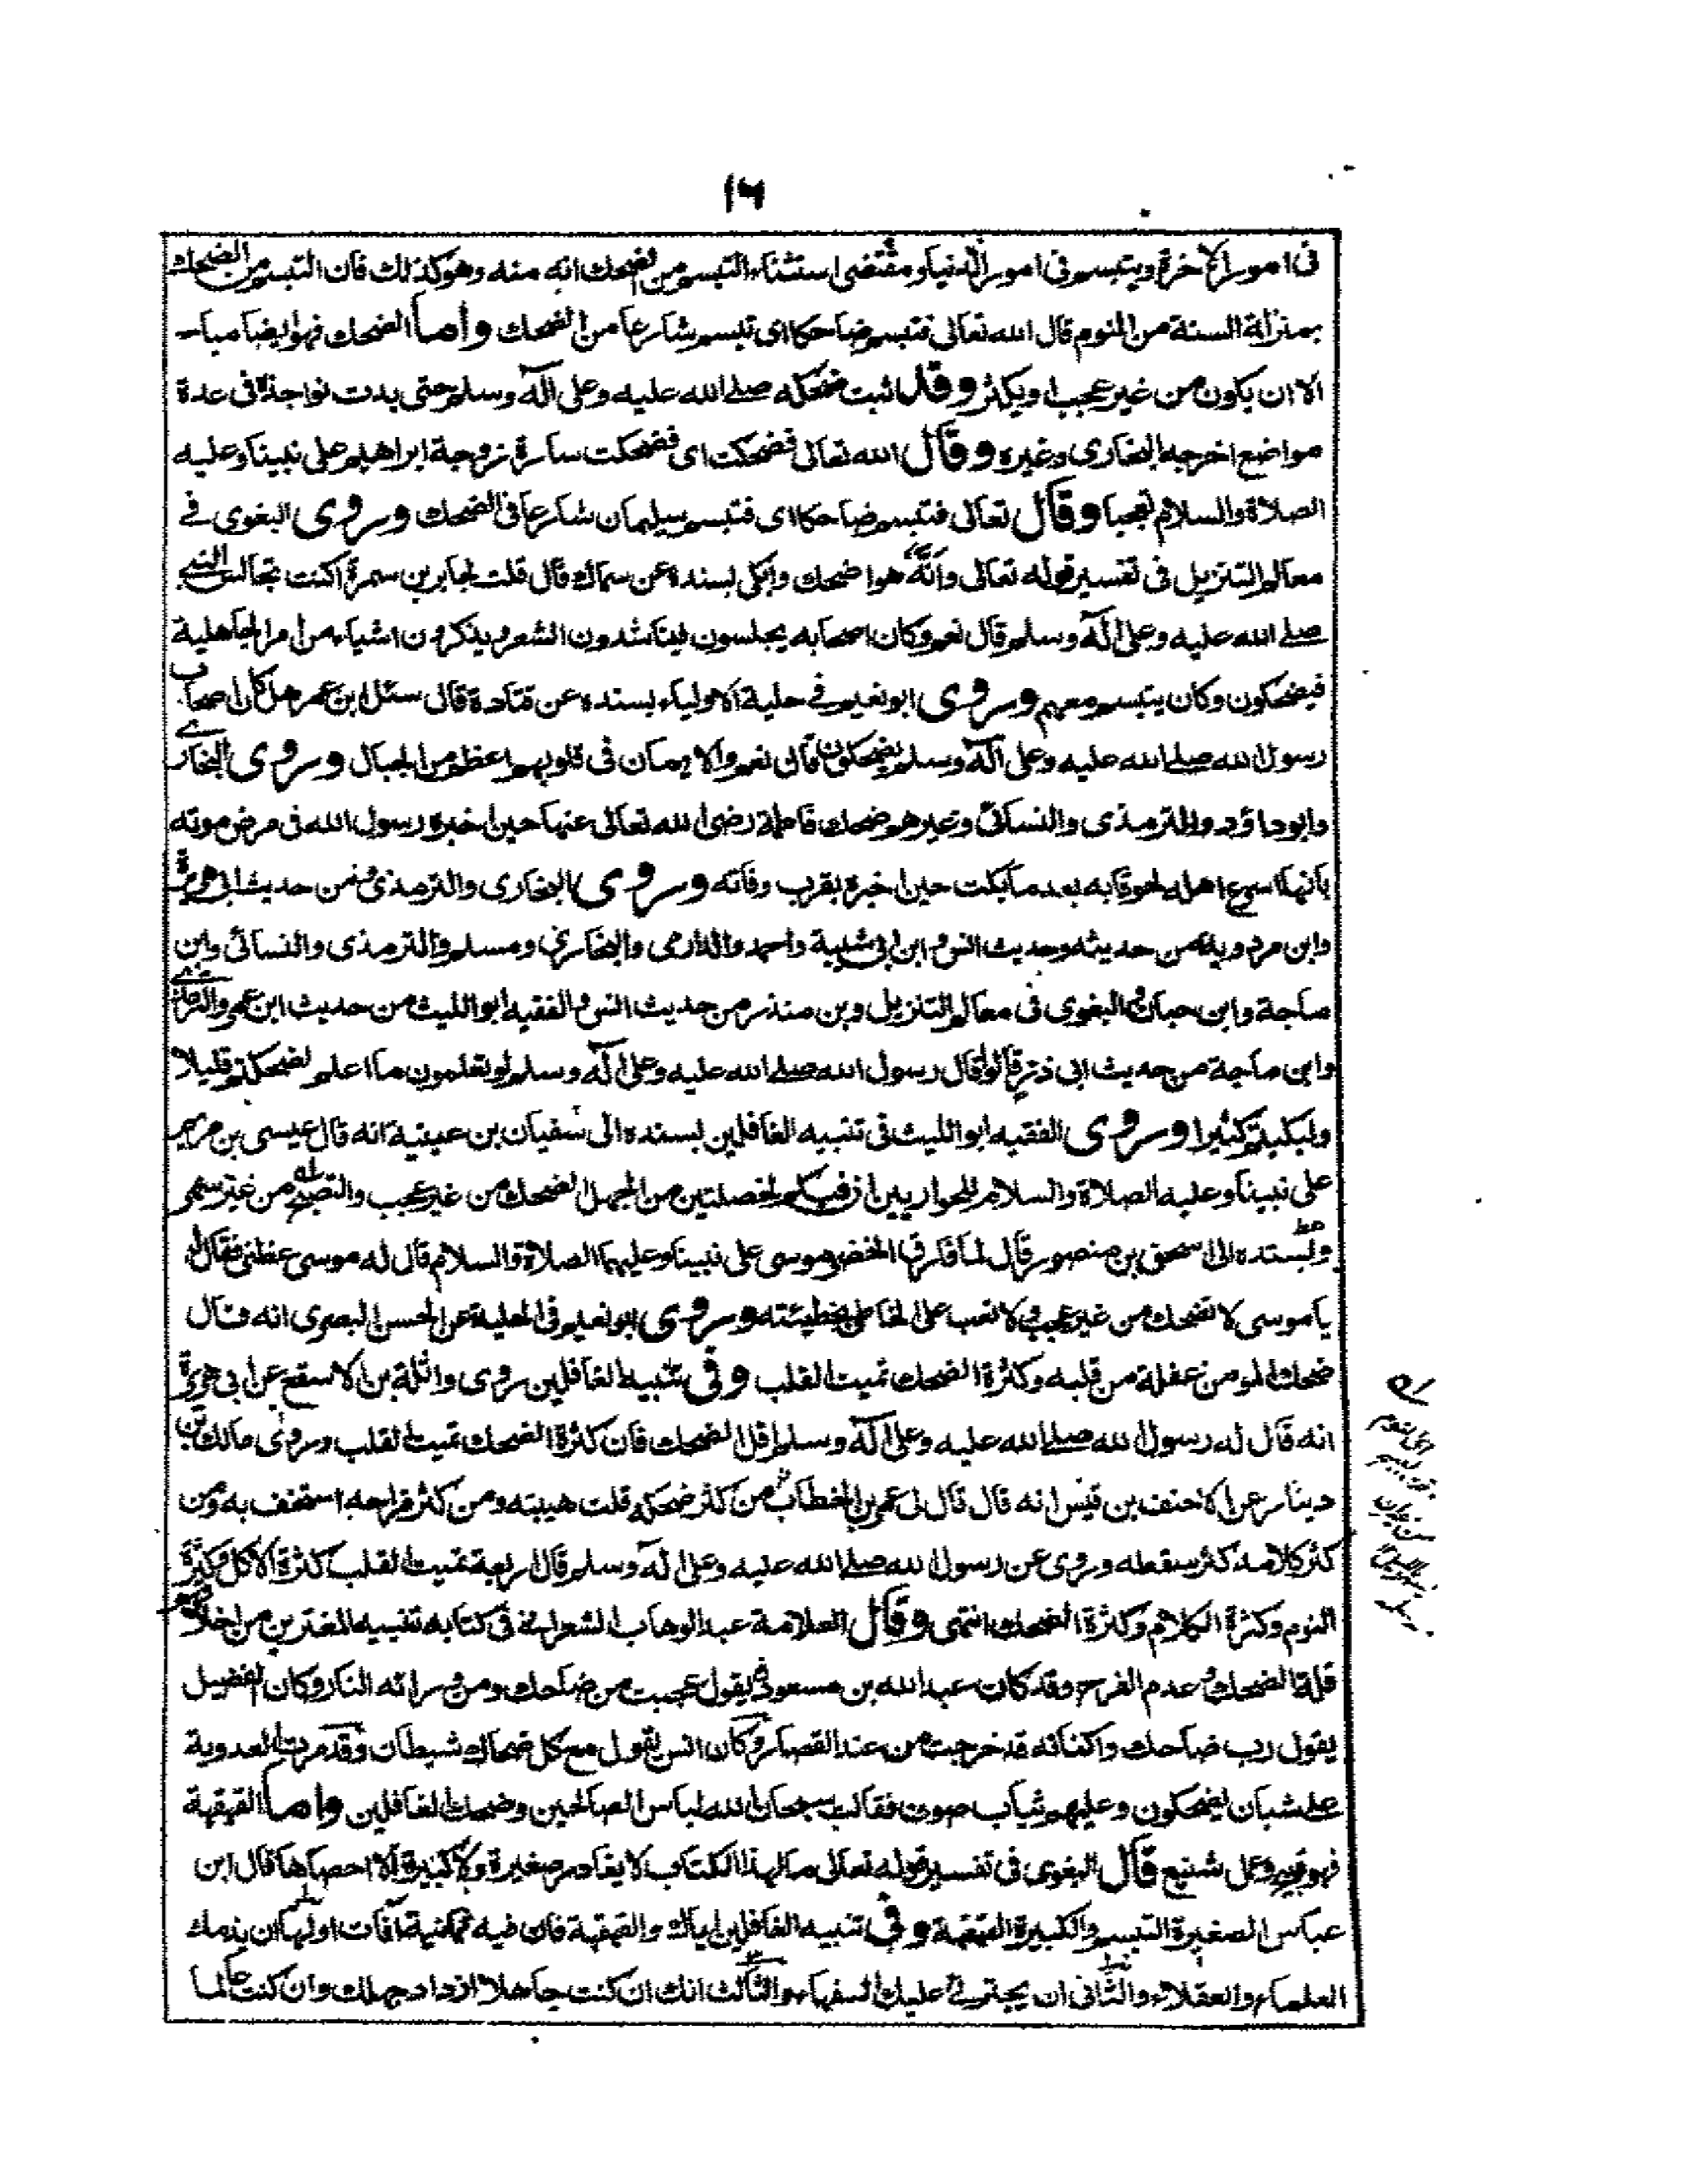 ١٦
فى امور الآخرة ويتبسم فى امور الدنيا ومقتضى استثناء التبسم من الضحك انه منه وهو كذلك فان التبسم من الضحك
بمنزلة السنة من النوم قال الله تعالى فتبسم ضاحكا اى تبسم شارعا من الضحك واما الضحك فهو ايضا مباح
الا ان يكون من غير عجب او يكثر وقد ثبت ضحكه صلے الله عليه وعلى آله وسلم حتى بدت نواجذه فى عدة
مواضع اخرجه البخارى وغيره وقال الله تعالى فضحكت اى فضحكت سارة زوجة ابراهيم على نبينا وعليه
الصلاة والسلام تعجبا وقال تعالى فتبسم ضاحكا اى فتبسم سليمان شارعا فى الضحك وروى البغوى فے
معالم التنزيل فى تفسير قوله تعالى وانه هو اضحك وابكى بسنده عن سماك قال قلت لجابر بن سمرة اكنت تجالس النبے
صلے الله عليه وعلى آله وسلم قال نعم وكان اصحابه يجلسون فيناشدون الشعر ويذكرون اشياء من امر الجاهلية
فيضحكون وكان يتبسم معهم وروى ابو نعيم فے حلية الاولياء بسنده عن قتادة قال سئل ابن عمر هل كان اصحاب
رسول الله صلے الله عليه وعلى آله وسلم يضحكون قال نعم والايمان فى قلوبهم اعظم من الجبال وروى البخارے
وابو داؤد والترمذى والنسائى وغيرهم ضحك فاطمة رضى الله تعالى عنها حين اخبره رسول الله فى مرض موته
بانها اسرع اهله لحوقا به بعد ما بكت حين اخبره بقرب وفاته وروى البخارى والترمذى من حديث ابى هريرة
وابن مردويه من حديثه وحديث انس وابن ابى شيبة واحمد والدارمى والبخارى ومسلم والترمذى والنسائى وابن
ماجة وابن حبان والبغوى فى معالم التنزيل وبن منذر من حديث انس والفقيه ابو الليث من حديث ابن عمر والترمذے
وابن ماجة من حديث ابى ذر قالوا قال رسول الله صلے الله عليه وعلى آله وسلم لو تعلمون ما اعلم لضحكتم قليلا
ولبكيتم كثيرا وروى الفقيه ابو الليث فى تنبيه الغافلين بسنده الى سفيان بن عيينة انه قال عيسى بن مريم
على نبينا وعليه الصلاة والسلام للحواريين ان فيكم لخصلتين من الجهل الضحك من غير عجب والتصبح من غير سهر
وبسنده الى اسحق بن منصور قال لما فارق الخضر موسى على نبينا وعليهما الصلاة والسلام قال له موسى عظنى فقال له
يا موسى لا تضحك من غير عجب ولا تعب على الخاطى بخطيئته وروى ابو نعيم فى الحلية عن الحسن البصرى انه قال
ضحك المومن غفلة من قلبه وكثرة الضحك تميت القلب وفى تنبيه الغافلين روى واثلة بن الاسقع عن ابى هريرة
انه قال له رسول الله صلے الله عليه وعلى آله وسلم اقل الضحك فان كثرة الضحك تميت القلب وروى مالك بن
دينار عن الاحنف بن قيس انه قال قال لى عمر بن الخطاب من كثر ضحكه قلت هيبته ومن كثر مزاحه استخف به ومن
كثر كلامه كثر سقطه وروى عن رسول الله صلے الله عليه وعلى آله وسلم قال اربعة تميت القلب كثرة الاكل وكثرة
النوم وكثرة الكلام وكثرة الضحك انتهى وقال العلامة عبد الوهاب الشعرانى فى كتابه تنبيه المغترين من اخلاقهم
قلة الضحك وعدم الفرح وقد كان عبد الله بن مسعود يقول عجبت من ضاحك ومن ورائه النار وكان الفضيل
يقول رب ضاحك واكفانه قد خرجت من عند القصار وكان انس يقول مع كل ضحاك شيطان وقد مرت العدوية
على شبان يضحكون وعليهم ثياب صوف فقالت سبحان الله لباس الصالحين وضحك الغافلين واما القهقهة
فهو قبيح وعمل شنيع قال البغوى فى تفسير قوله تعالى مال هذا الكتاب لا يغادر صغيرة ولا كبيرة الا احصاها قال ابن
عباس الصغيرة التبسم والكبيرة القهقهة وفى تنبيه الغافلين اياك والقهقهة فان فيه ثمانية آفات اولها ان يذمك
العلماء والعقلاء والثانى ان يجترئ عليك السفهاء والثالث انك ان كنت جاهلا ازداد جهلك وان كنت عالما